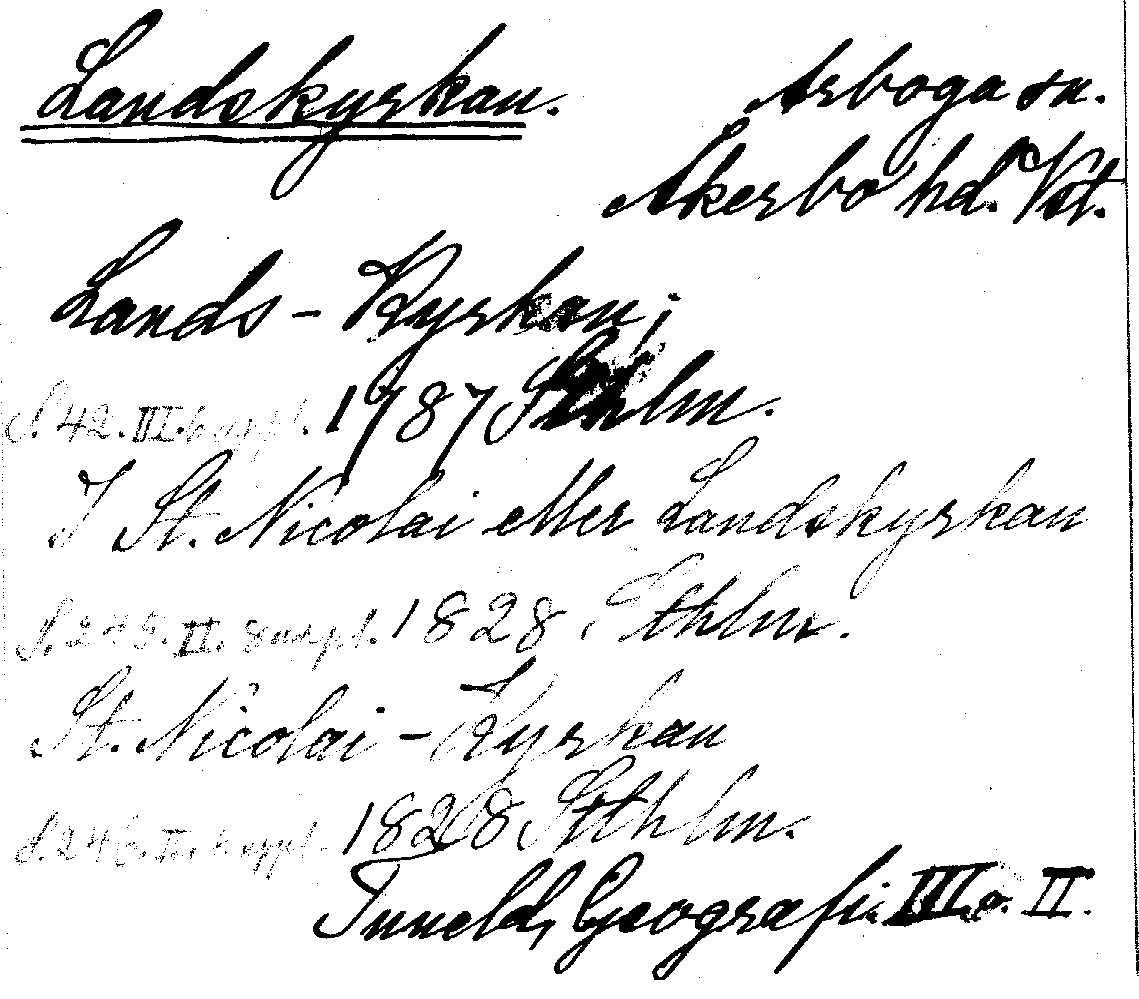 Landskyrkan.
Arboga sn.
Åkerbo hd. Vstm.
Lands-Kyrkan;
S. 42. III. suppl. 1787 Sthlm.
I St. Nicolai eller Landskyrkan
S. 245. II. suppl. 1828. Sthlm.
St. Nicolai-Kyrkan
S. 246. II. suppl. 1828 Sthlm.
Tuneld, Geografi. III o. II.